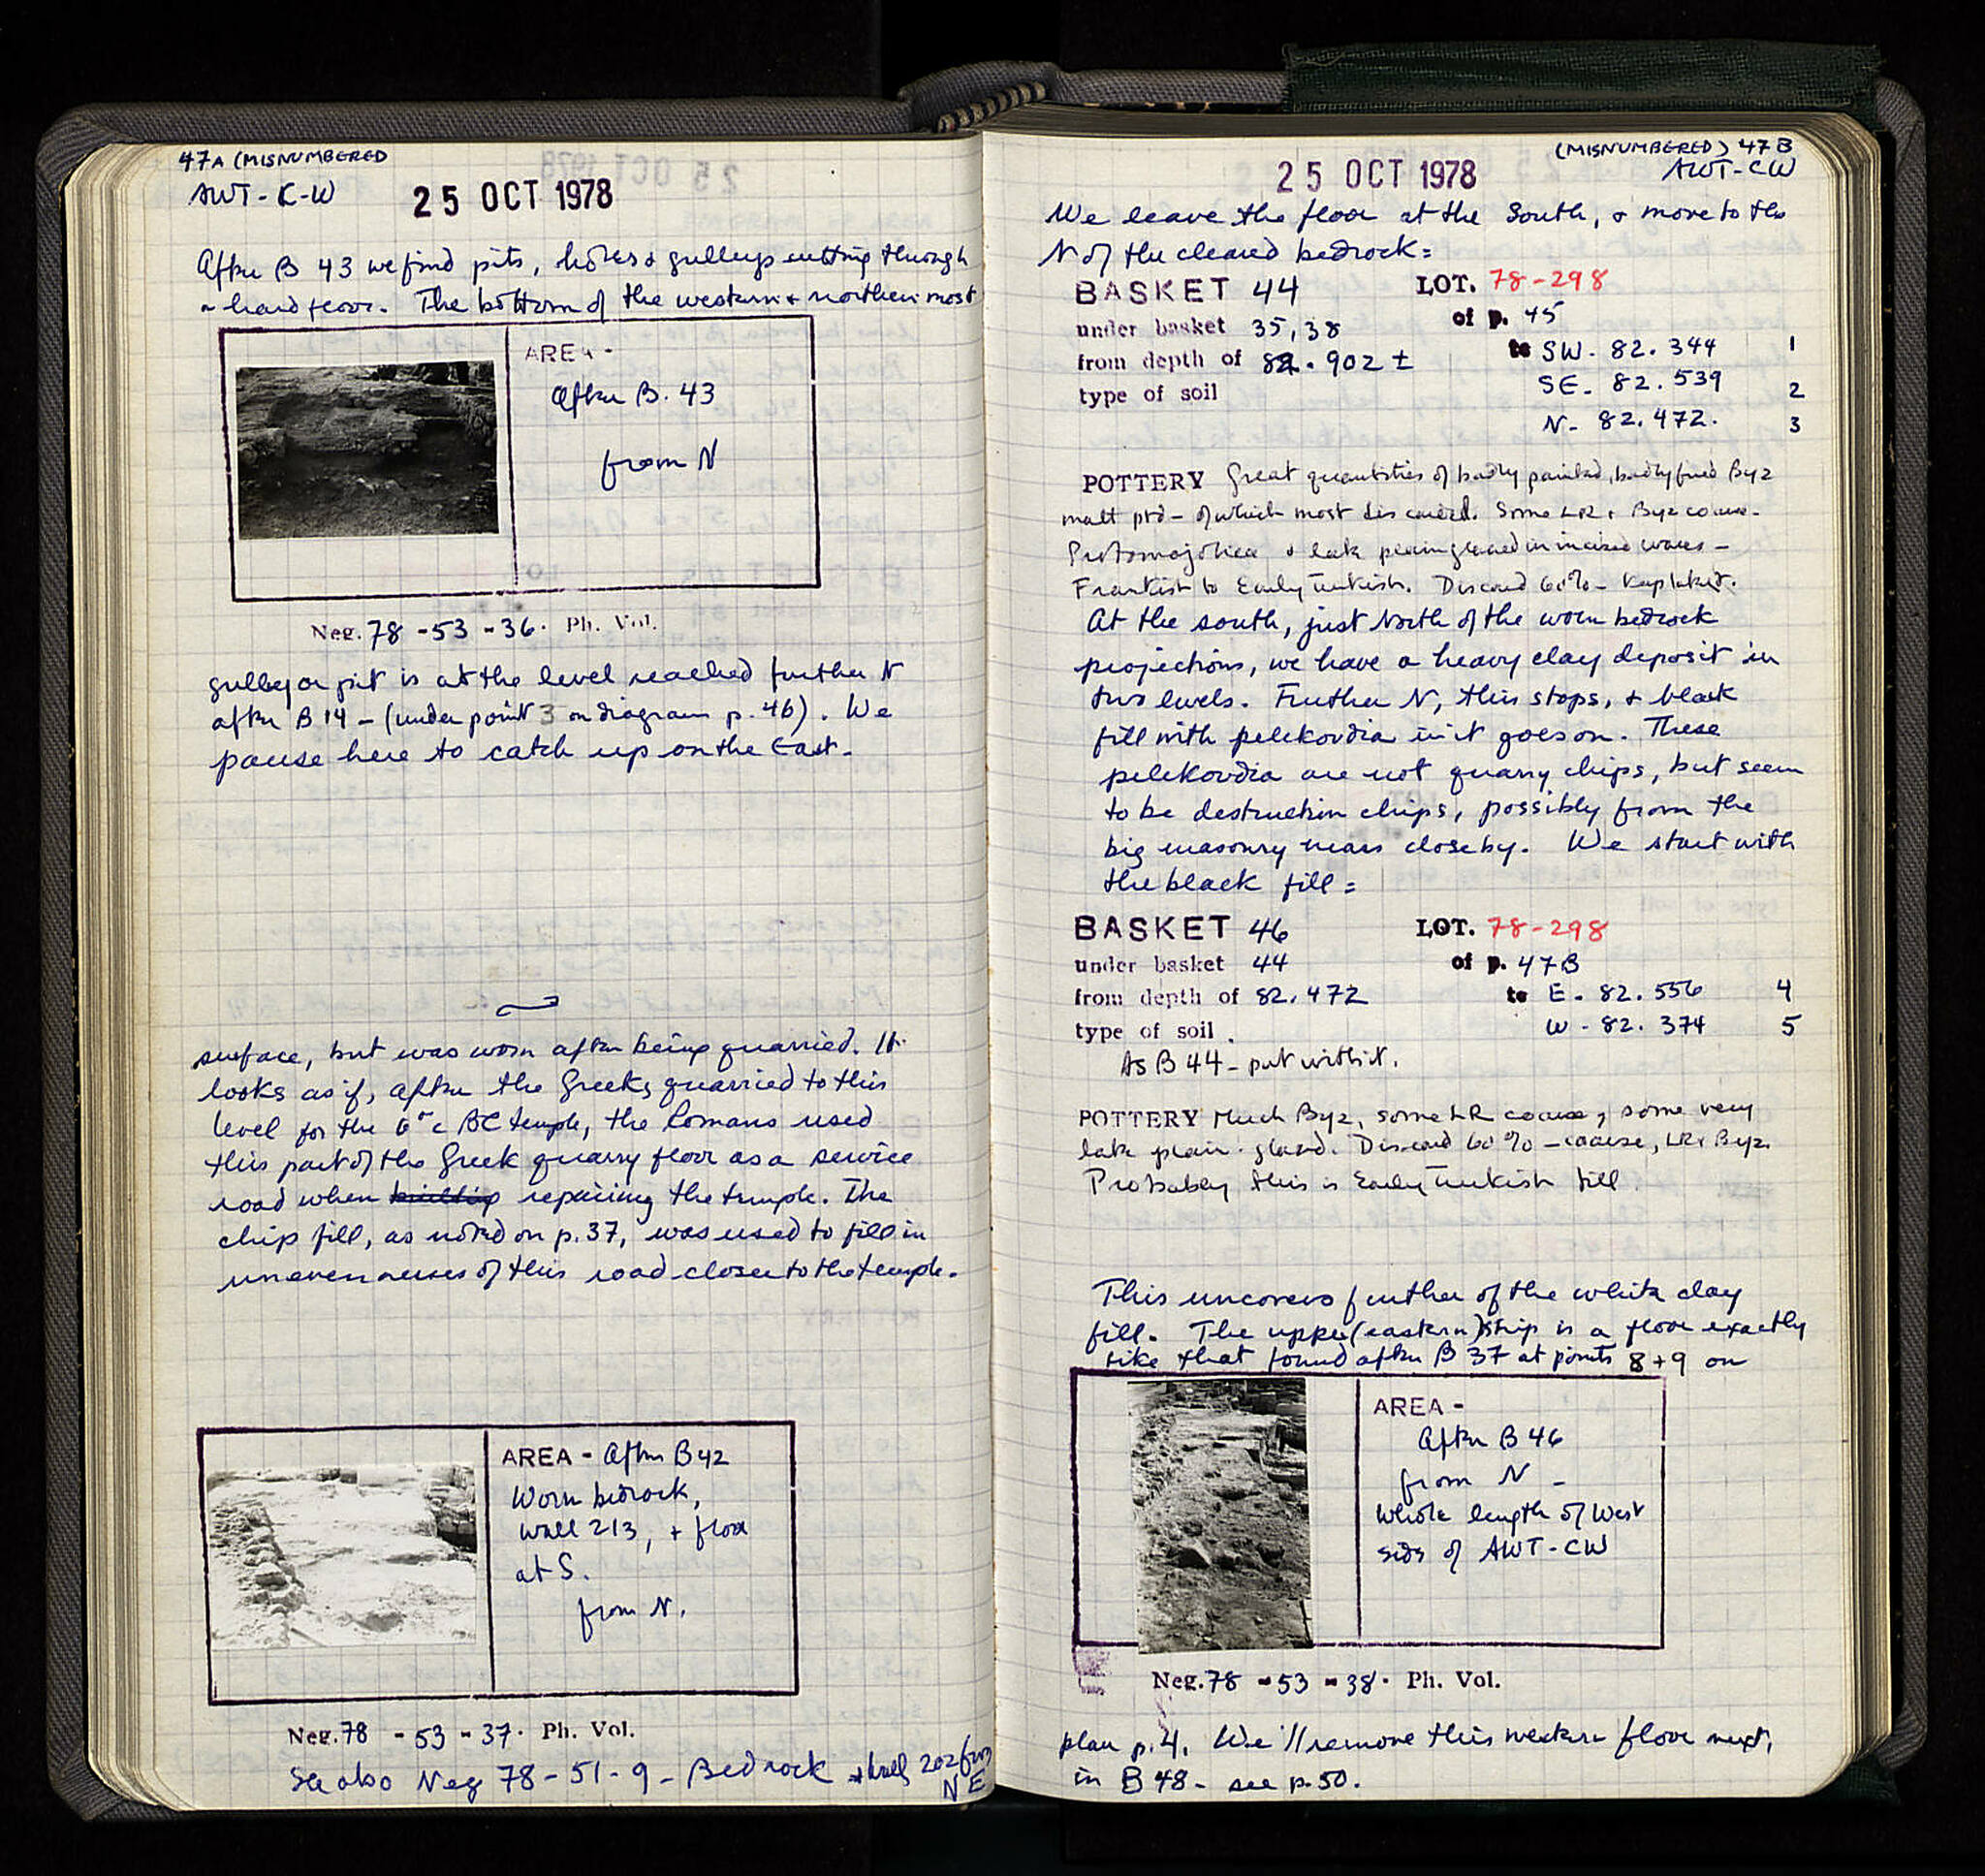 47A (MISNUMBERED
AWT-C-W 25 OCT 1978
After B 43 we find pits, holes & gulleys cutting through
a hard floor. The bottom of the western & northern most
AREA -
After B. 43
from N
Neg. 78 - 53 - 36. Ph. Vol.
gulley or pit is at the level reached further N
after B 14 - (under point 3 on diagram p. 46). We
pause here to catch up on the East.
surface, but was worn after being quarried. It
looks as if, after the Greeks quarried to this
level for the 6th c BC temple, the Romans used
this part of the Greek quarry floor as a service
road when building repairing the temple. The
chip fill, as noted on p. 37, was used to fill in
unevennesses of this road closer to the temple.
AREA - After B 42
Worn bedrock,
wall 213, + floor
at S.
from N.
Neg. 78 - 53 - 37. Ph. Vol.
See also Neg 78-51-9 - Bedrock & wall 202 from
NE
(MISNUMBERED) 47B
25 OCT 1978 AWT-CW
We leave the floor at the South, & move to the
N of the cleared bedrock =
BASKET 44 LOT. 78-298
under basket 35, 38 of p. 45
from depth of 82.902 ± to SW - 82.344 1
type of soil SE - 82.539 2
N - 82.472. 3
POTTERY Great quantities of badly painted, badly fired Byz
matt ptd - of which most discarded. Some LR & Byz coarse.
Protomajolica & late plain glazed in incised wares -
Frankish to Early Turkish. Discard 60% - Kap laked.
At the south, just North of the worn bedrock
projections, we have a heavy clay deposit in
two levels. Further N, this stops, & black
fill with pelekoudia in it goes on. These
pelekoudia are not quarry chips, but seem
to be destruction chips, possibly from the
big masonry mass close by. We start with
the black fill =
BASKET 46 LOT. 78-298
under basket 44 of p. 47B
from depth of 82.472 to E - 82.556 4
type of soil. W - 82.374 5
As B 44 - put with it.
POTTERY Much Byz, some LR coarse, some very
late plain glazed. Discard 60% - coarse, LR & Byz.
Probably this is Early Turkish fill
This uncovers further of the white clay
fill. The upper (eastern) strip is a floor exactly
like that found after B 37 at points 8 + 9 on
AREA -
After B 46
from N -
Whole length of West
side of AWT-CW
Neg. 78 - 53 - 38. Ph. Vol.
plan p. 4. We'll remove this western floor next,
in B 48 - see p. 50.